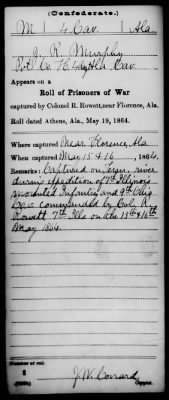 (Confederate.)
M 4 Cav. Ala.
J. R. Murphy
Pvt Co. H. 4 Ala. Cav.
Appears on a
Roll of Prisoners of War
captured by Colonel R. Rowett, near Florence, Ala.
Roll dated Athens, Ala., May 19, 1864.
Where captured Near Florence, Ala
When captured May 15 & 16, 1864.
Remarks: Captured on Tenn. river
during expedition of 7th Illinois
mounted Infantry and 9th Ohio
Cav. commanded by Col. R.
Rowett 7th Ills on the 15th & 16th
May 1864.
Number of roll:
J. W. Conrard
Copyist.